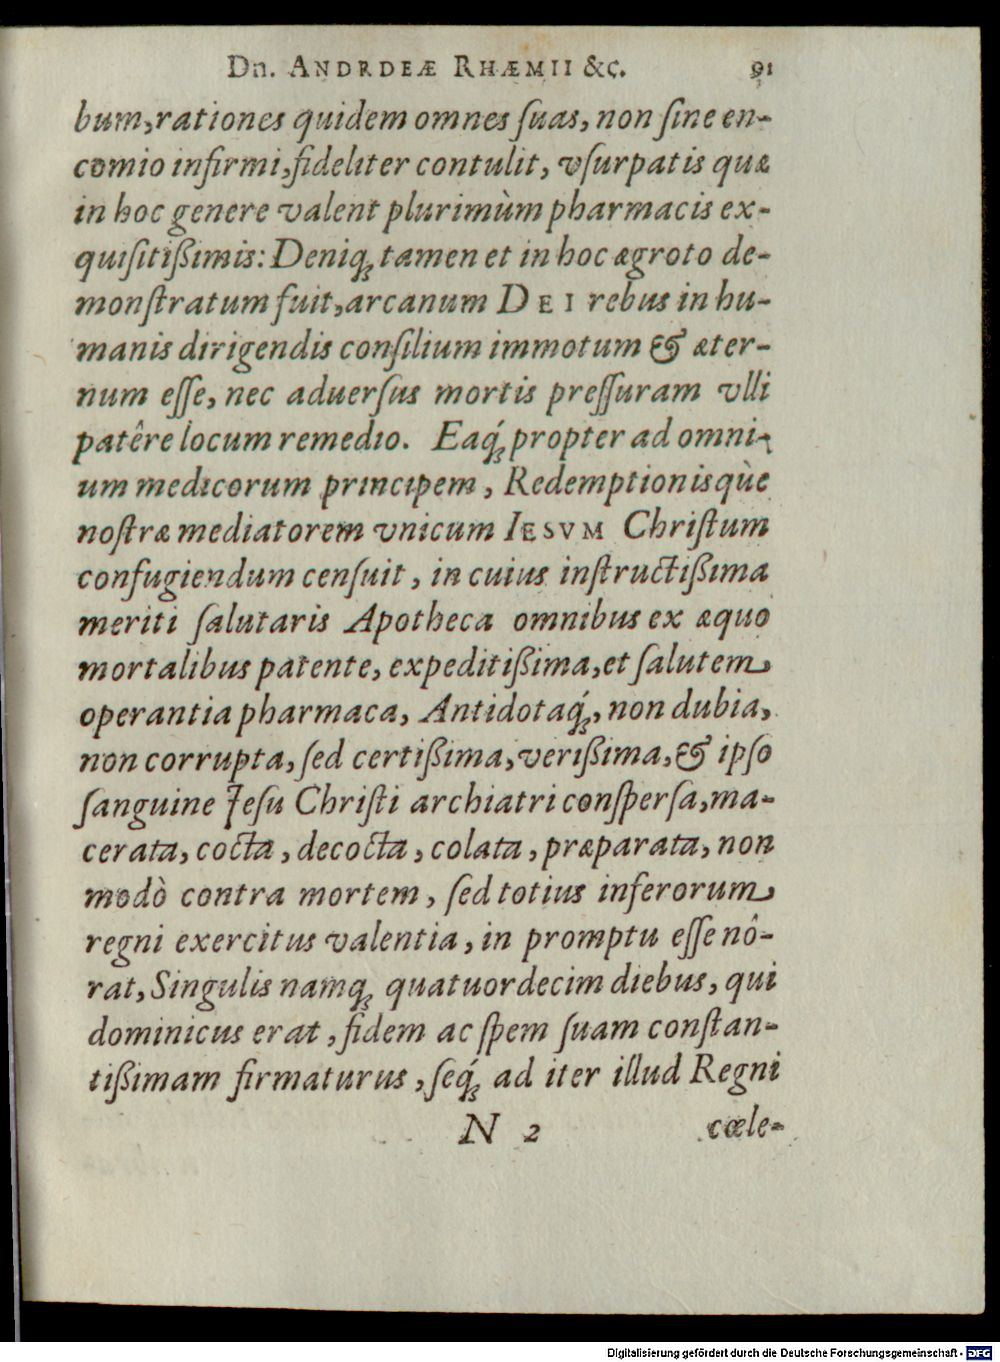 Dn. ANDRDEÆ RHÆMII &c. 91
bum,rationes quidem omnes ſuas, non ſine en-
comio infirmi,fideliter contulit, vſurpatis quæ
in hoc genere valent plurimùm pharmacis ex-
quiſitißimis: Deniq́; tamen et in hoc ægroto de-
monſtratum fuit,arcanum DEI rebus in hu-
manis dirigendis conſilium immotum & æter-
num eſſe, nec aduerſus mortis preſſuram vlli
patêre locum remedio. Eaq́; propter ad omni-
um medicorum principem, Redemptionisquè
noſtræ mediatorem vnicum IESVM Chriſtum
confugiendum cenſuit, in cuius inſtructißima
meriti ſalutaris Apotheca omnibus ex æquo
mortalibus patente, expeditißima,et ſalutem
operantia pharmaca, Antidotaq́;, non dubia,
non corrupta, ſed certißima,verißima,& ipſo
ſanguine Jeſu Chriſti archiatri conſperſa,ma-
cerata, cocta, decocta, colata, præparata, non
modò contra mortem, ſed totius inferorum
regni exercitus valentia, in promptu eſſe nô-
rat, Singulis namq; quatuordecim diebus, qui
dominicus erat, fidem ac ſpem ſuam conſtan-
tißimam firmaturus, ſeq́; ad iter illud Regni
N 2 cœle-
Digitalisierung gefördert durch die Deutsche Forschungsgemeinschaft - DFG